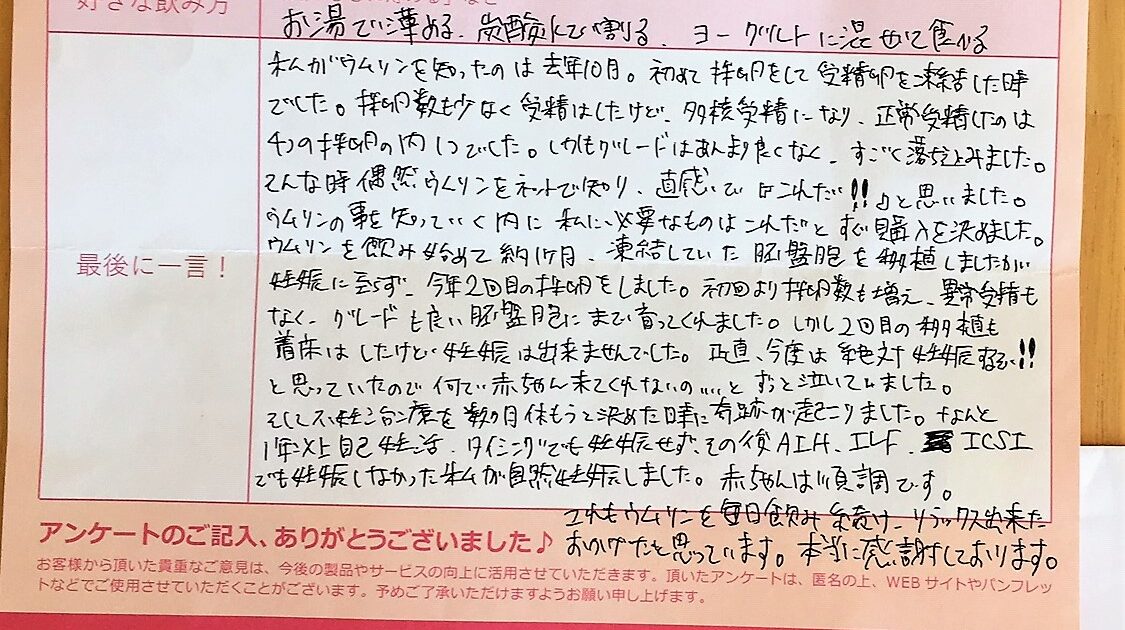 好きな飲み方
お湯で薄める、炭酸水で割る、ヨーグルトに混ぜて食べる
最後に一言！
私がウムリンを知ったのは去年10月。初めて採卵をして受精卵を凍結した時
でした。採卵数も少なく受精はしたけど、多核受精になり、正常受精したのは
4つの採卵の内1つでした。しかもグレードはあんまり良くなく、すごく落ち込みました。
そんな時偶然ウムリンをネットで知り、直感で「これだ!!♪」と思いました。
ウムリンの事を知っていく内に私に必要なものはこれだとすぐ購入を決めました。
ウムリンを飲み始めて約1ヶ月、凍結していた胚盤胞を移植しましたが
妊娠に至らず、今年2回目の採卵をしました。初回より採卵数も増え、異常受精も
なく、グレードも良い胚盤胞にまで育ってくれました。しかし2回目の移植も
着床はしたけど妊娠は出来ませんでした。正直、今度は絶対妊娠するぞ!!
と思っていたので何で赤ちゃん来てくれないの…とずっと泣いてました。
そして不妊治療を数ヶ月休もうと決めた時に奇跡が起こりました。なんと
1年以上自己妊活、タイミングでも妊娠せず、その後AIH、IVF、ICSI
でも妊娠しなかった私が自然妊娠しました。赤ちゃんは順調です。
これもウムリンを毎日飲み続け、リラックス出来た
おかげだと思っています。本当に感謝しております。
アンケートのご記入、ありがとうございました♪
お客様から頂いた貴重なご意見は、今後の製品やサービスの向上に活用させていただきます。頂いたアンケートは、匿名の上、WEBサイトやパンフレッ
トなどでご使用させていただくことがございます。予めご了承いただけますようお願い申し上げます。